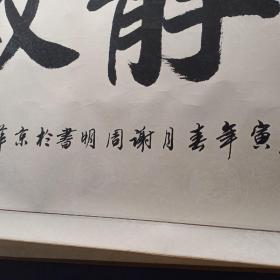 寅年春月謝周明書於京華